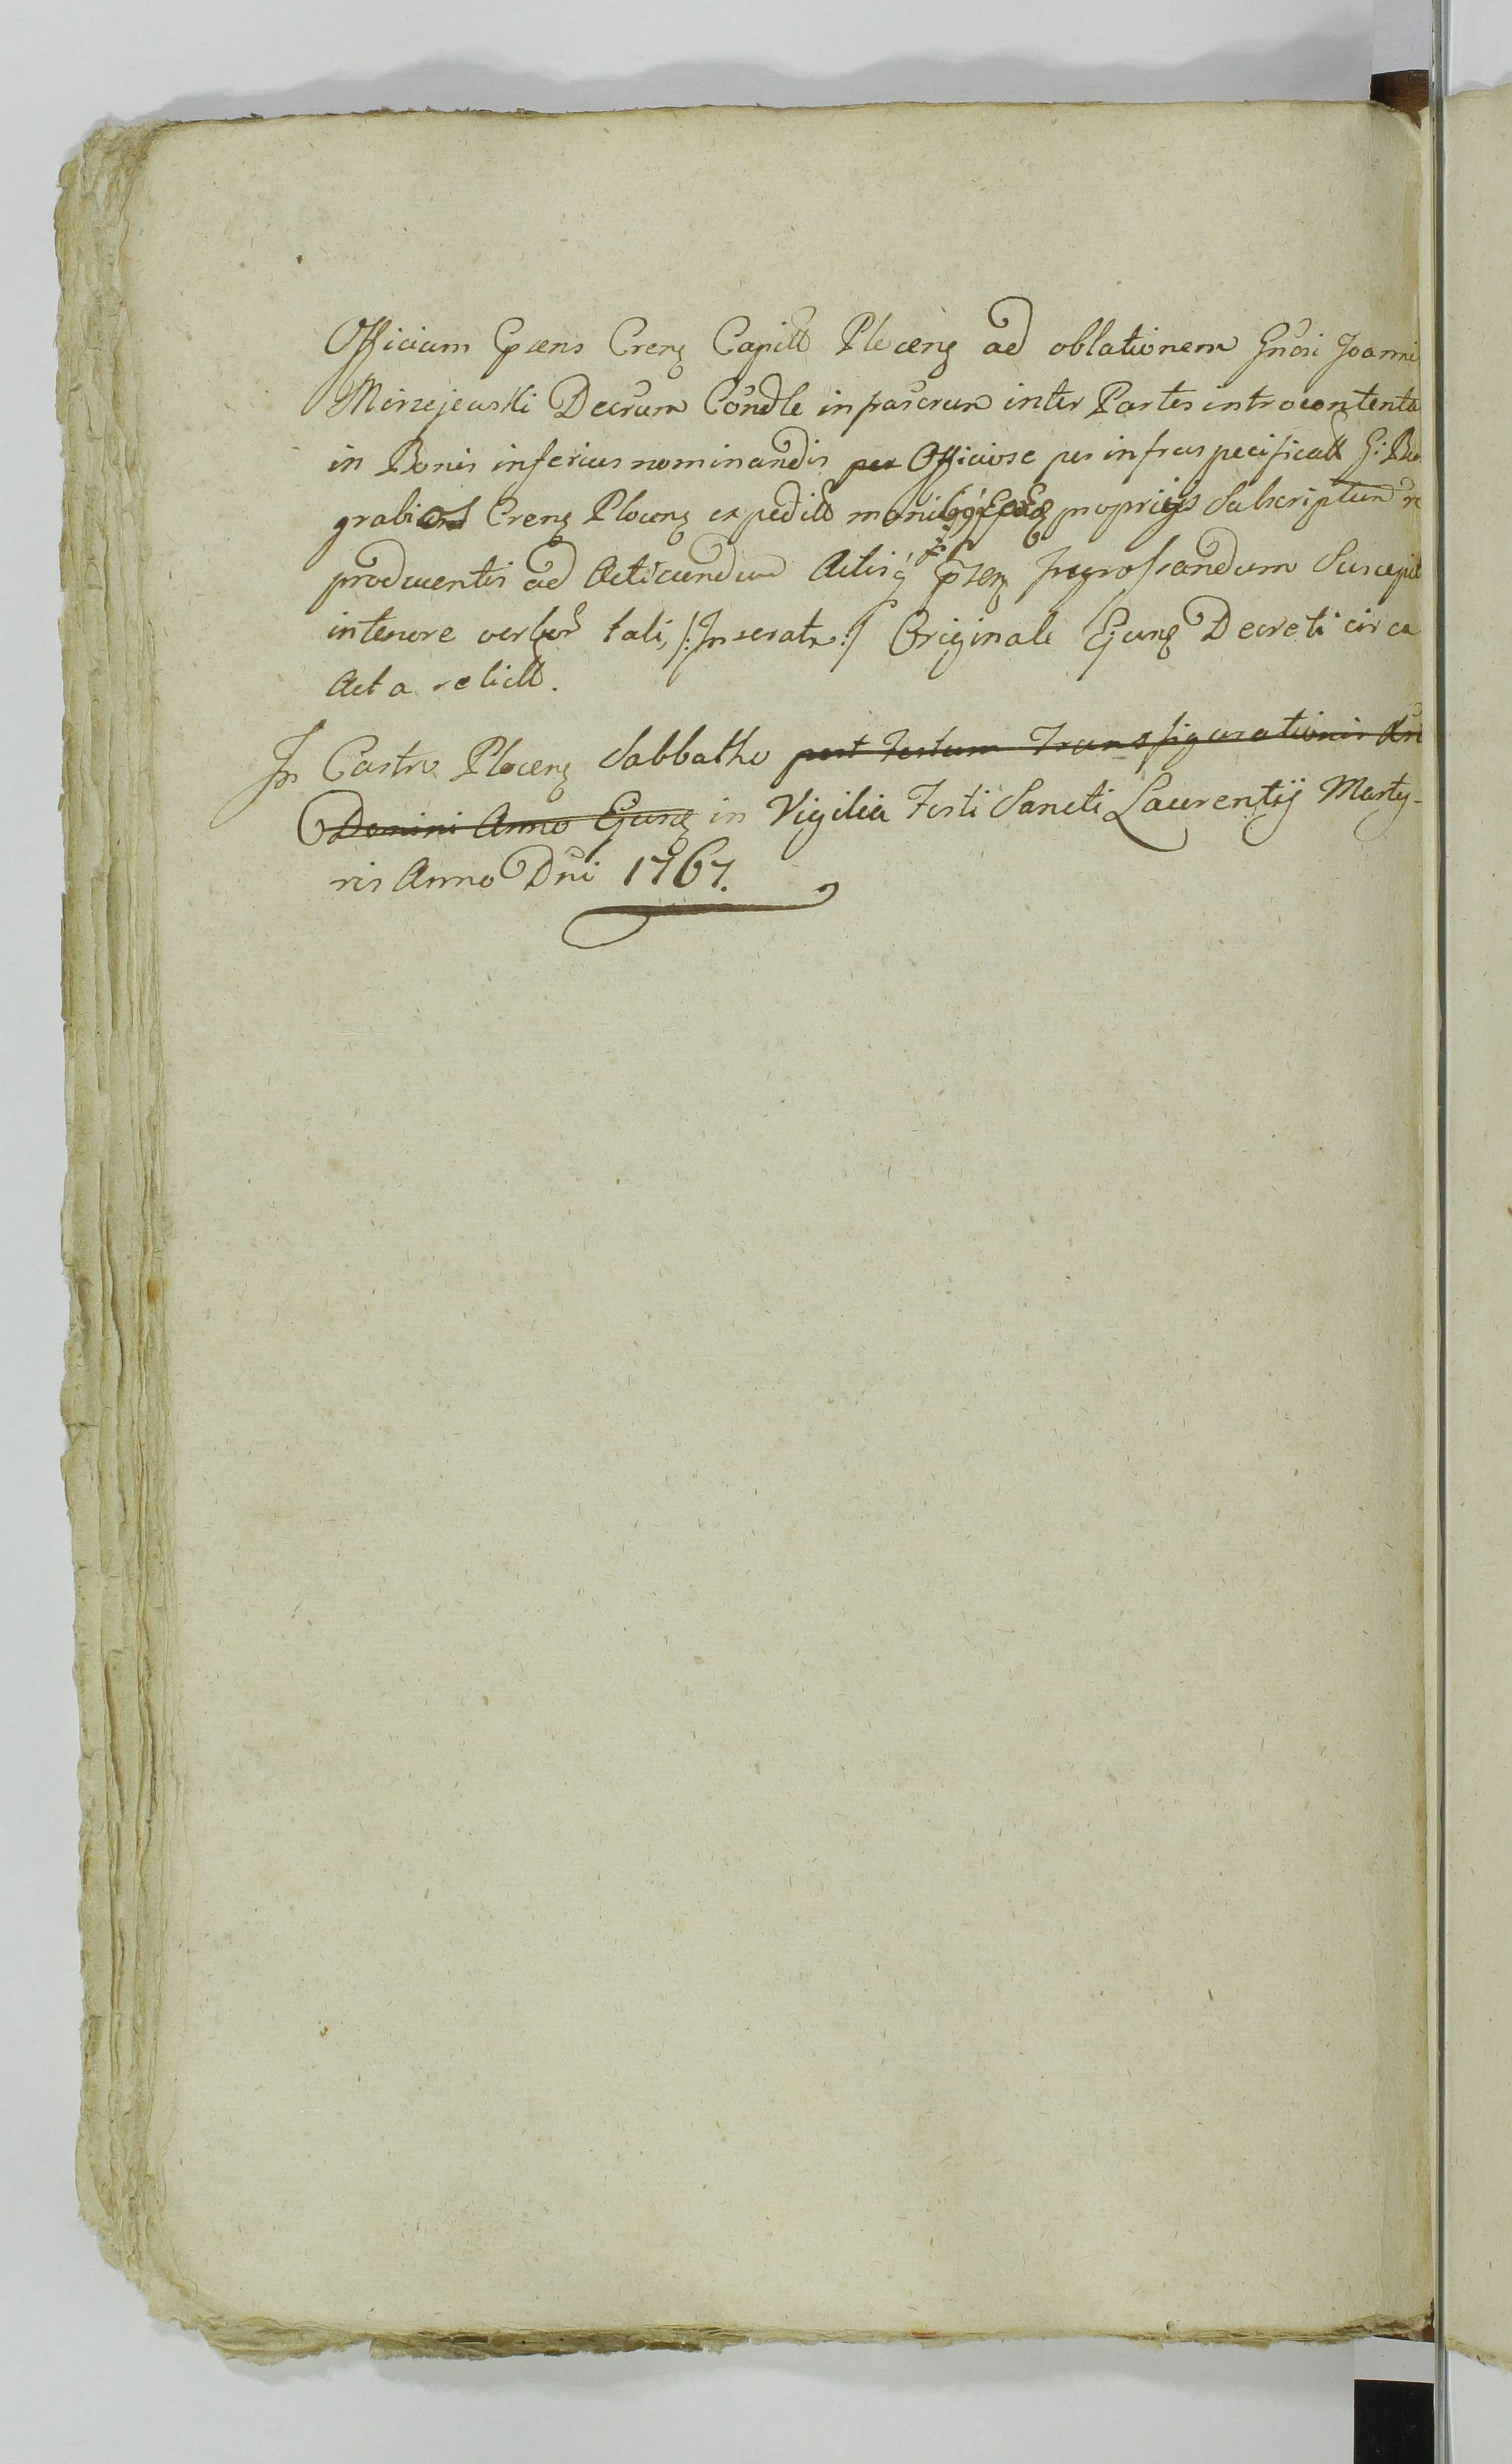 Officium Pſens Crenꝫ Capitt Plocenꝫ ad oblationem Gnosi Joanni
Mirzejewski Decrum Condle in pascrum inter Partes introcontenta
in Bonis inferius nominandis per Officiose per infraspecificatt G: Bur
grabios Crenꝫ Plocenꝫ expeditt manibq́ proprijs Subscriptum re
producentis ad Acticandum Actisq́ pr̃senꝫ Ingrossandum Suscepit
in tenore verbor tali, /:Inseratr:/ Originali Ejusꝫ Decreti circa
Acta relictt.
In Castro Plocenꝫ Sabbatho post Festum Transfigurationis Chri
Domini Anno Ejusꝫ in Vigilia Festi Sancti Laurentij Marty-
ris Anno Dni 1767.